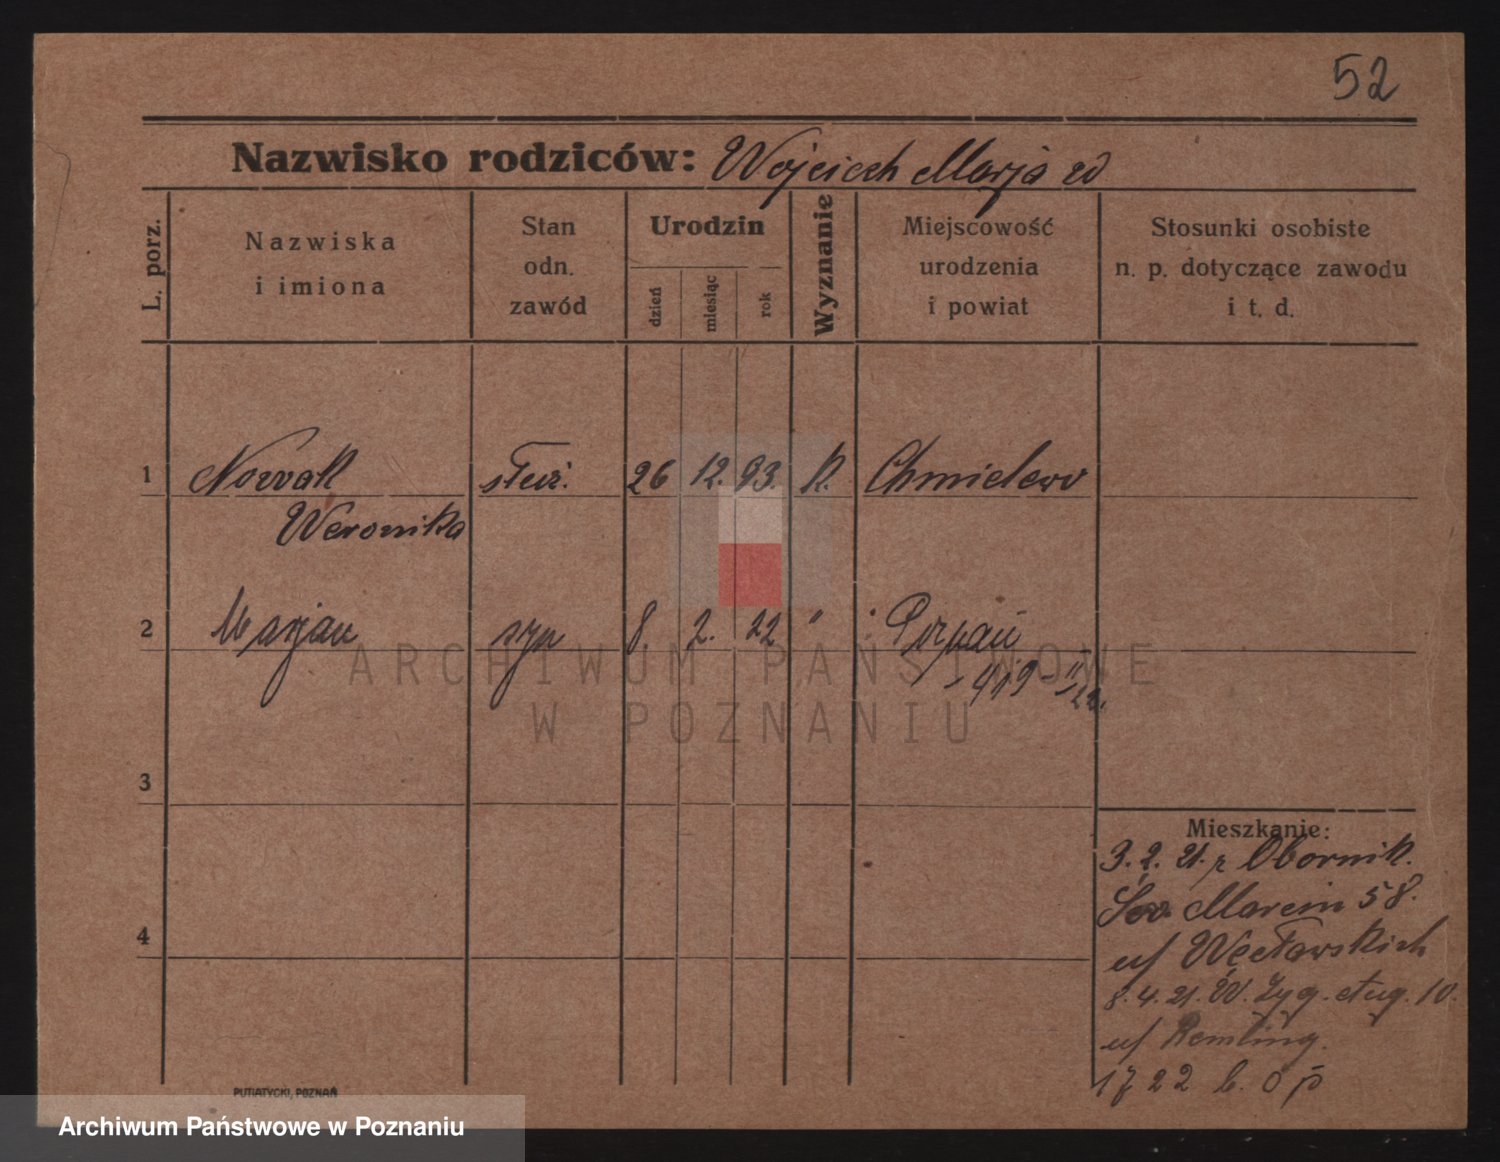 52
Nazwisko rodziców: Wojciech Marja zd
L. porz.
Nazwiska
i imiona
Stan
odn.
zawód
Urodzin
dzień
miesiąc
rok
Wyznanie
Miejscowość
urodzenia
i powiat
Stosunki osobiste
n. p. dotyczące zawodu
i t. d.
1 Nowak służ. 26 12. 93. k. Chmielewo
Weronika
2 Marjan syn 8. 2. 22 " Poznań
419
3
Mieszkanie:
3. 2. 21. z Obornik.
Św. Marcin 58.
u/ Węcławskich
4
8. 4. 21. W. Zyg. Aug. 10.
u/ Remling.
22 b. o p
PUTIATYCKI, POZNAŃ
ARCHIWUM PAŃSTWOWE
W POZNANIU
Archiwum Państwowe w Poznaniu